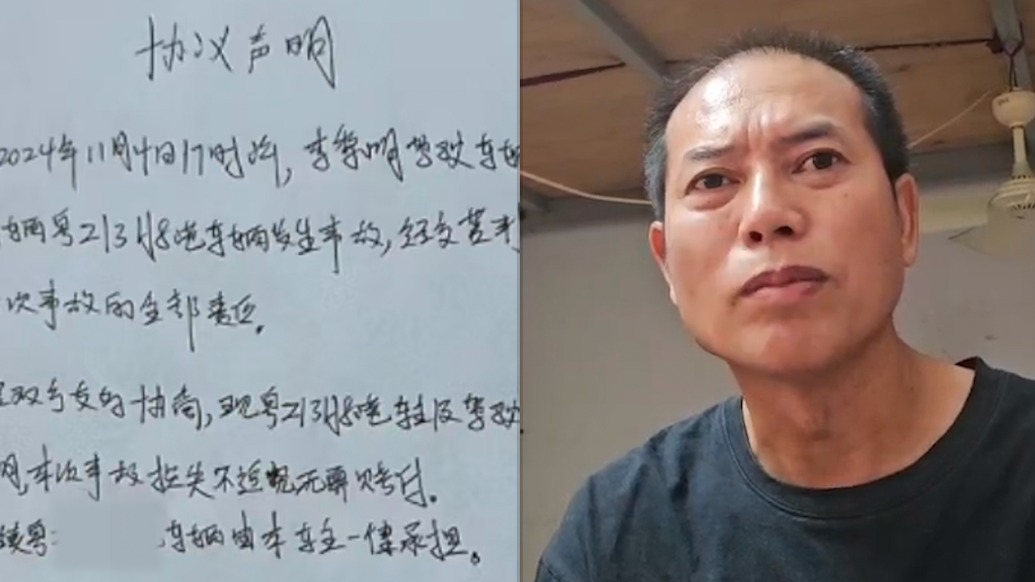 协议声明
2024年11月4日17时许,驾驶车辆
辆粤Z13H8港车辆发生事故,经交警
次事故的全部责任。
双方友好协商,现粤Z13H8港车主及驾驶
明,本次事故损失不追究无需赔付。
粤: 车辆由本车主一律承担。